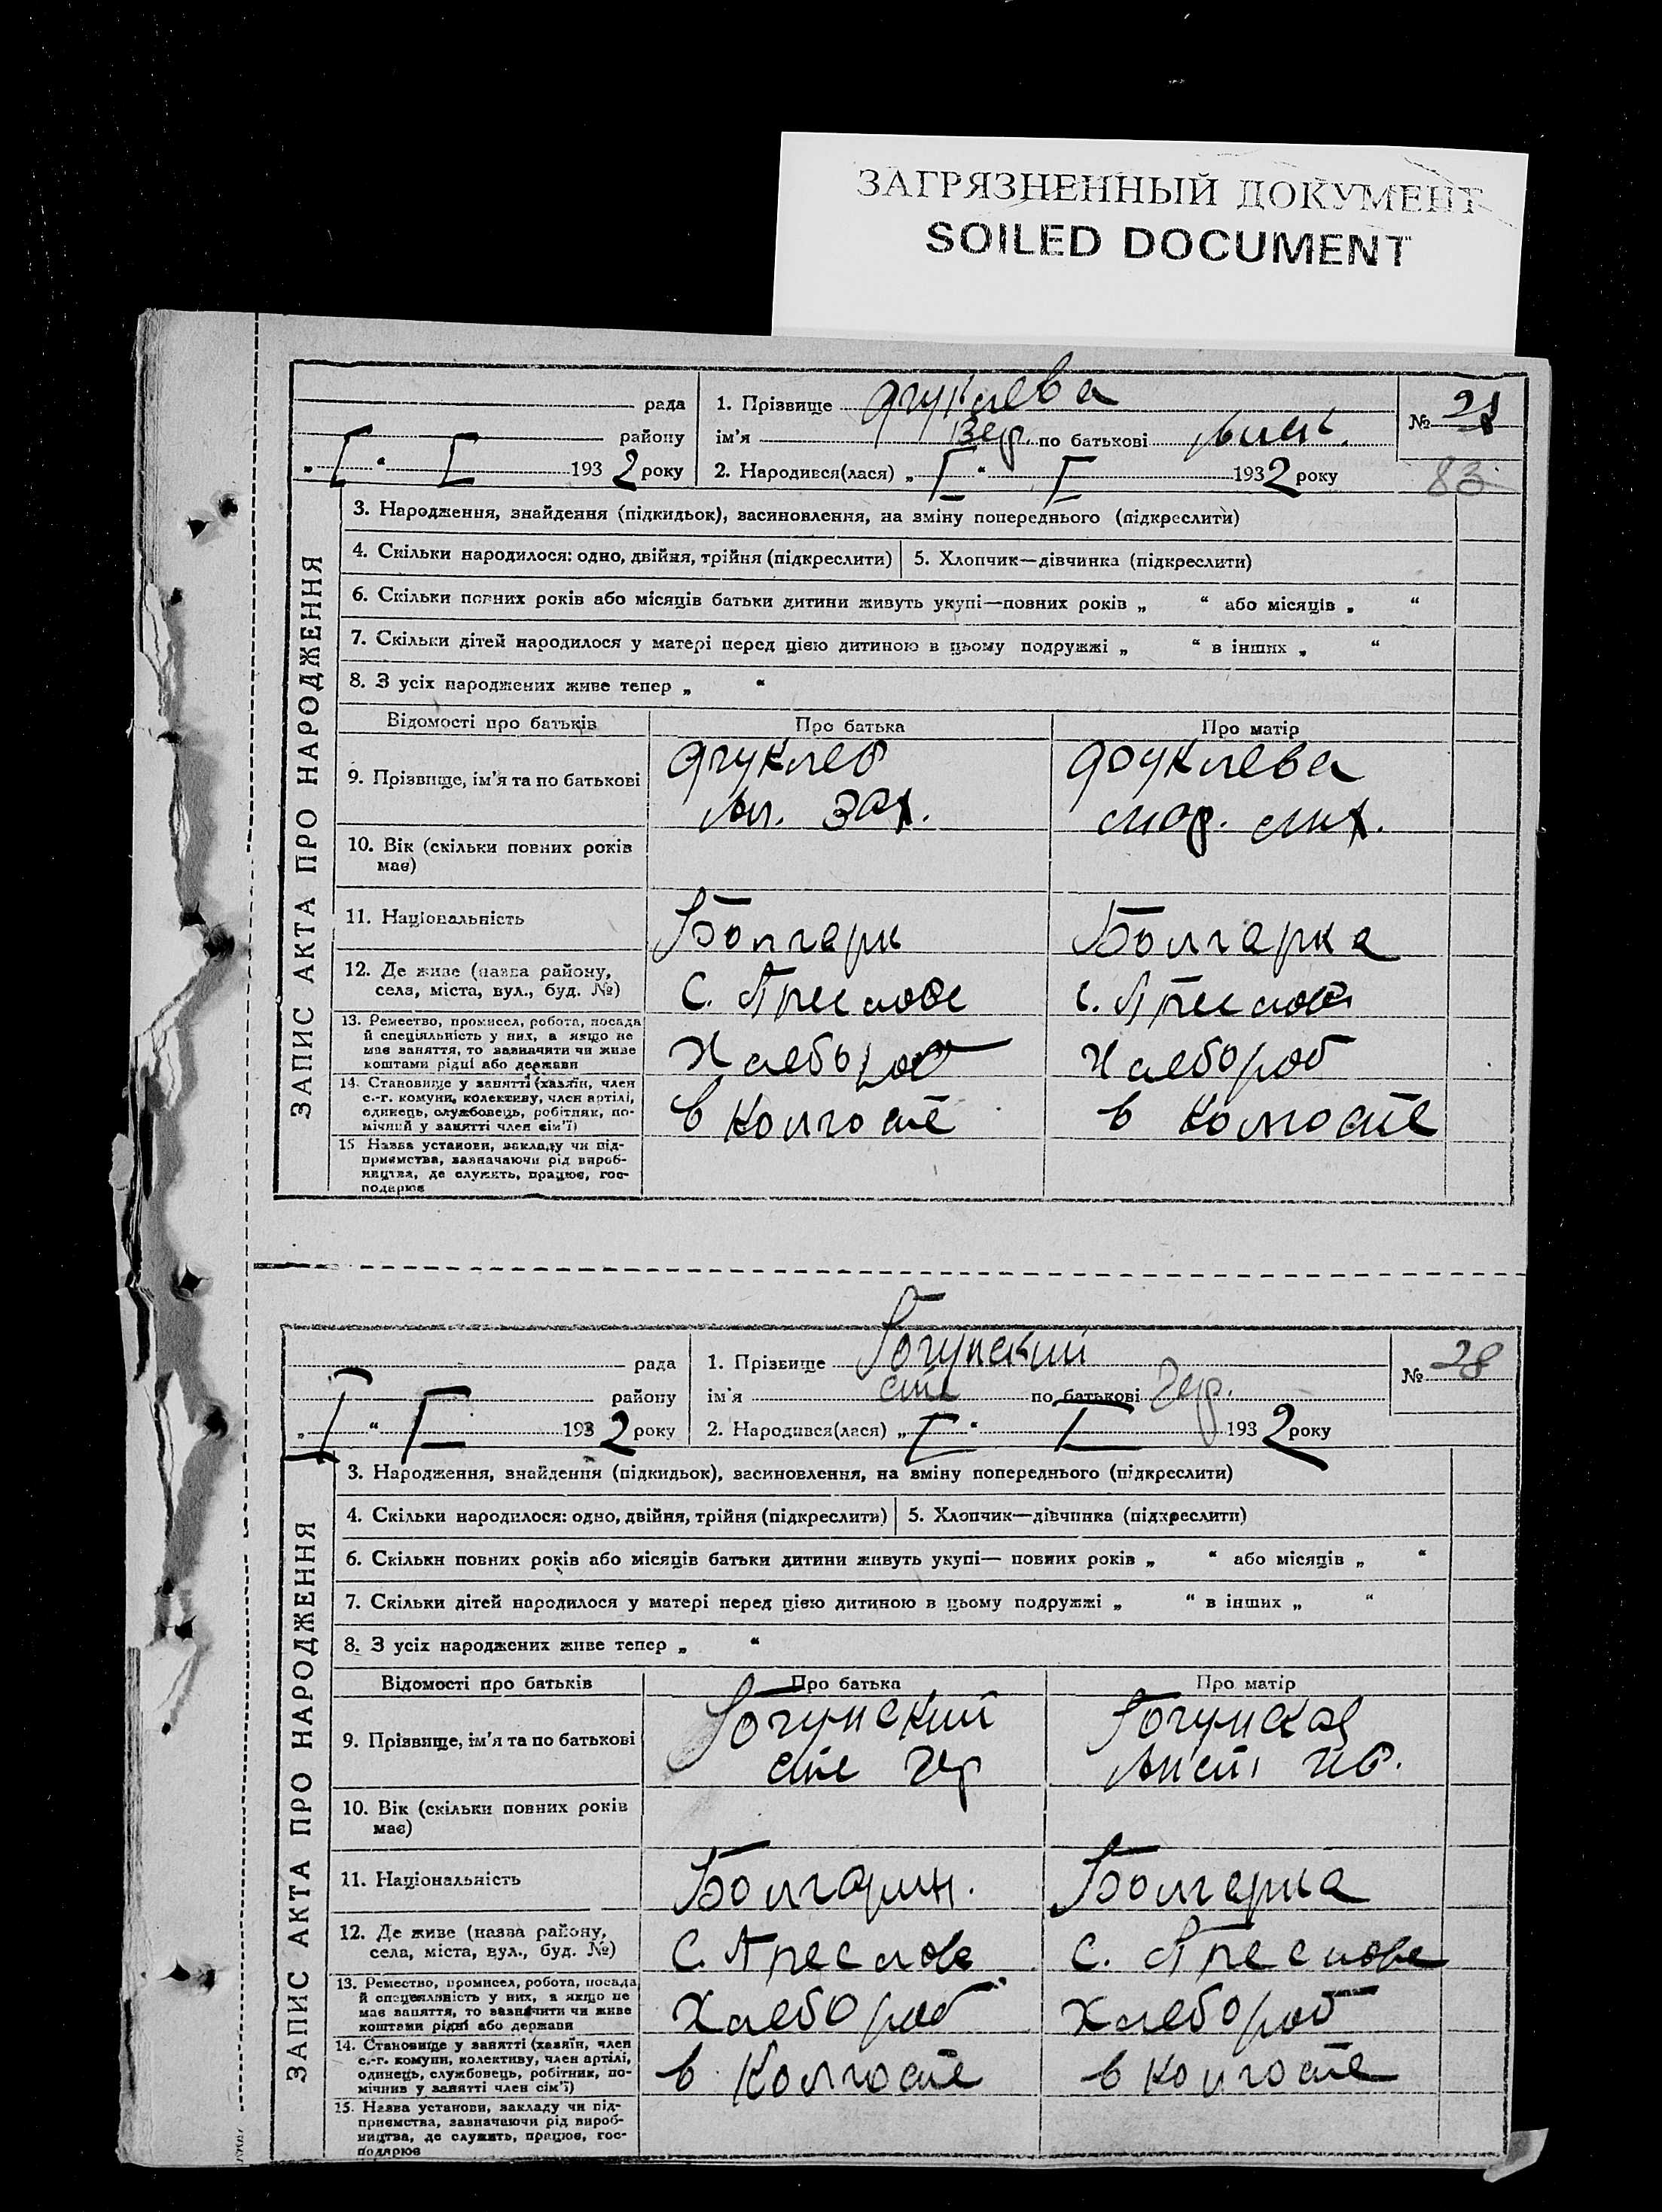 ЗАГРЯЗНЕННЫЙ ДОКУМЕНТ
SOILED DOCUMENT
рада
району
„ I “ I 1932 року
1. Прізвище
ім'я Вер. по батькові
2. Народився(лася) „ I “ I 1932 року
№ 28
83
ЗАПИС АКТА ПРО НАРОДЖЕННЯ
3. Народження, знайдення (підкидьок), васиновлення, на зміну попереднього (підкреслити)
4. Скільки народилося: одно, двійня, трійня (підкреслити) 5. Хлопчик—дівчинка (підкреслити)
6. Скільки повних років або місяців батьки дитини живуть укупі—повних років „ “ або місяців „ “
7. Скільки дітей народилося у матері перед цією дитиною в цьому подружжі „ “ в інших „ “
8. З усіх народжених живе тепер „ “
Відомості про батьків Про батька Про матір
9. Прізвище, ім'я та по батькові
зах. мар. мих.
10. Вік (скільки повних років має)
11. Національність Болгарин Болгарка
12. Де живе (назва району, села, міста, вул., буд. №) С. Преслове с. Преслове
13. Ремество, промисел, робота, посада й спеціяльність у них, а якщо не має заняття, то зазначити чи живе коштами рідні або держави Хлебороб Хлебороб
14. Становище у занятті (хазяїн, член с.-г. комуни, колективу, член артілі, одинець, службовець, робітник, помічний у занятті член сім'ї) в колгоспе в колгоспе
15 Назва установи, закладу чи підприємства, зазначаючи рід виробництва, де служить, працює, господарює
рада
району
„ I “ I 1932 року
1. Прізвище
ім'я сте по батькові Гер.
2. Народився(лася) „ I “ I 1932 року
№ 28
ЗАПИС АКТА ПРО НАРОДЖЕННЯ
3. Народження, знайдення (підкидьок), васиновлення, на зміну попереднього (підкреслити)
4. Скільки народилося: одно, двійня, трійня (підкреслити) 5. Хлопчик—дівчинка (підкреслити)
6. Скільки повних років або місяців батьки дитини живуть укупі— повних років „ “ або місяців „ “
7. Скільки дітей народилося у матері перед цією дитиною в цьому подружжі „ “ в інших „ “
8. З усіх народжених живе тепер „ “
Відомості про батьків Про батька Про матір
9. Прізвище, ім'я та по батькові
сте Гер
10. Вік (скільки повних років має)
11. Національність Болгарин. Болгарка
12. Де живе (назва району, села, міста, вул., буд. №) С. Преслове С. Преслове
13. Ремество, промисел, робота, посада й спеціяльність у них, а якщо не має заняття, то зазначити чи живе коштами рідні або держави Хлебороб Хлебороб
14. Становище у занятті (хазяїн, член с.-г. комуни, колективу, член артілі, одинець, службовець, робітник, помічнив у занятті член сім'ї) в Колгоспе в колгоспе
15. Назва установи, закладу чи підприємства, зазначаючи рід виробництва, де служить, працює, господарює